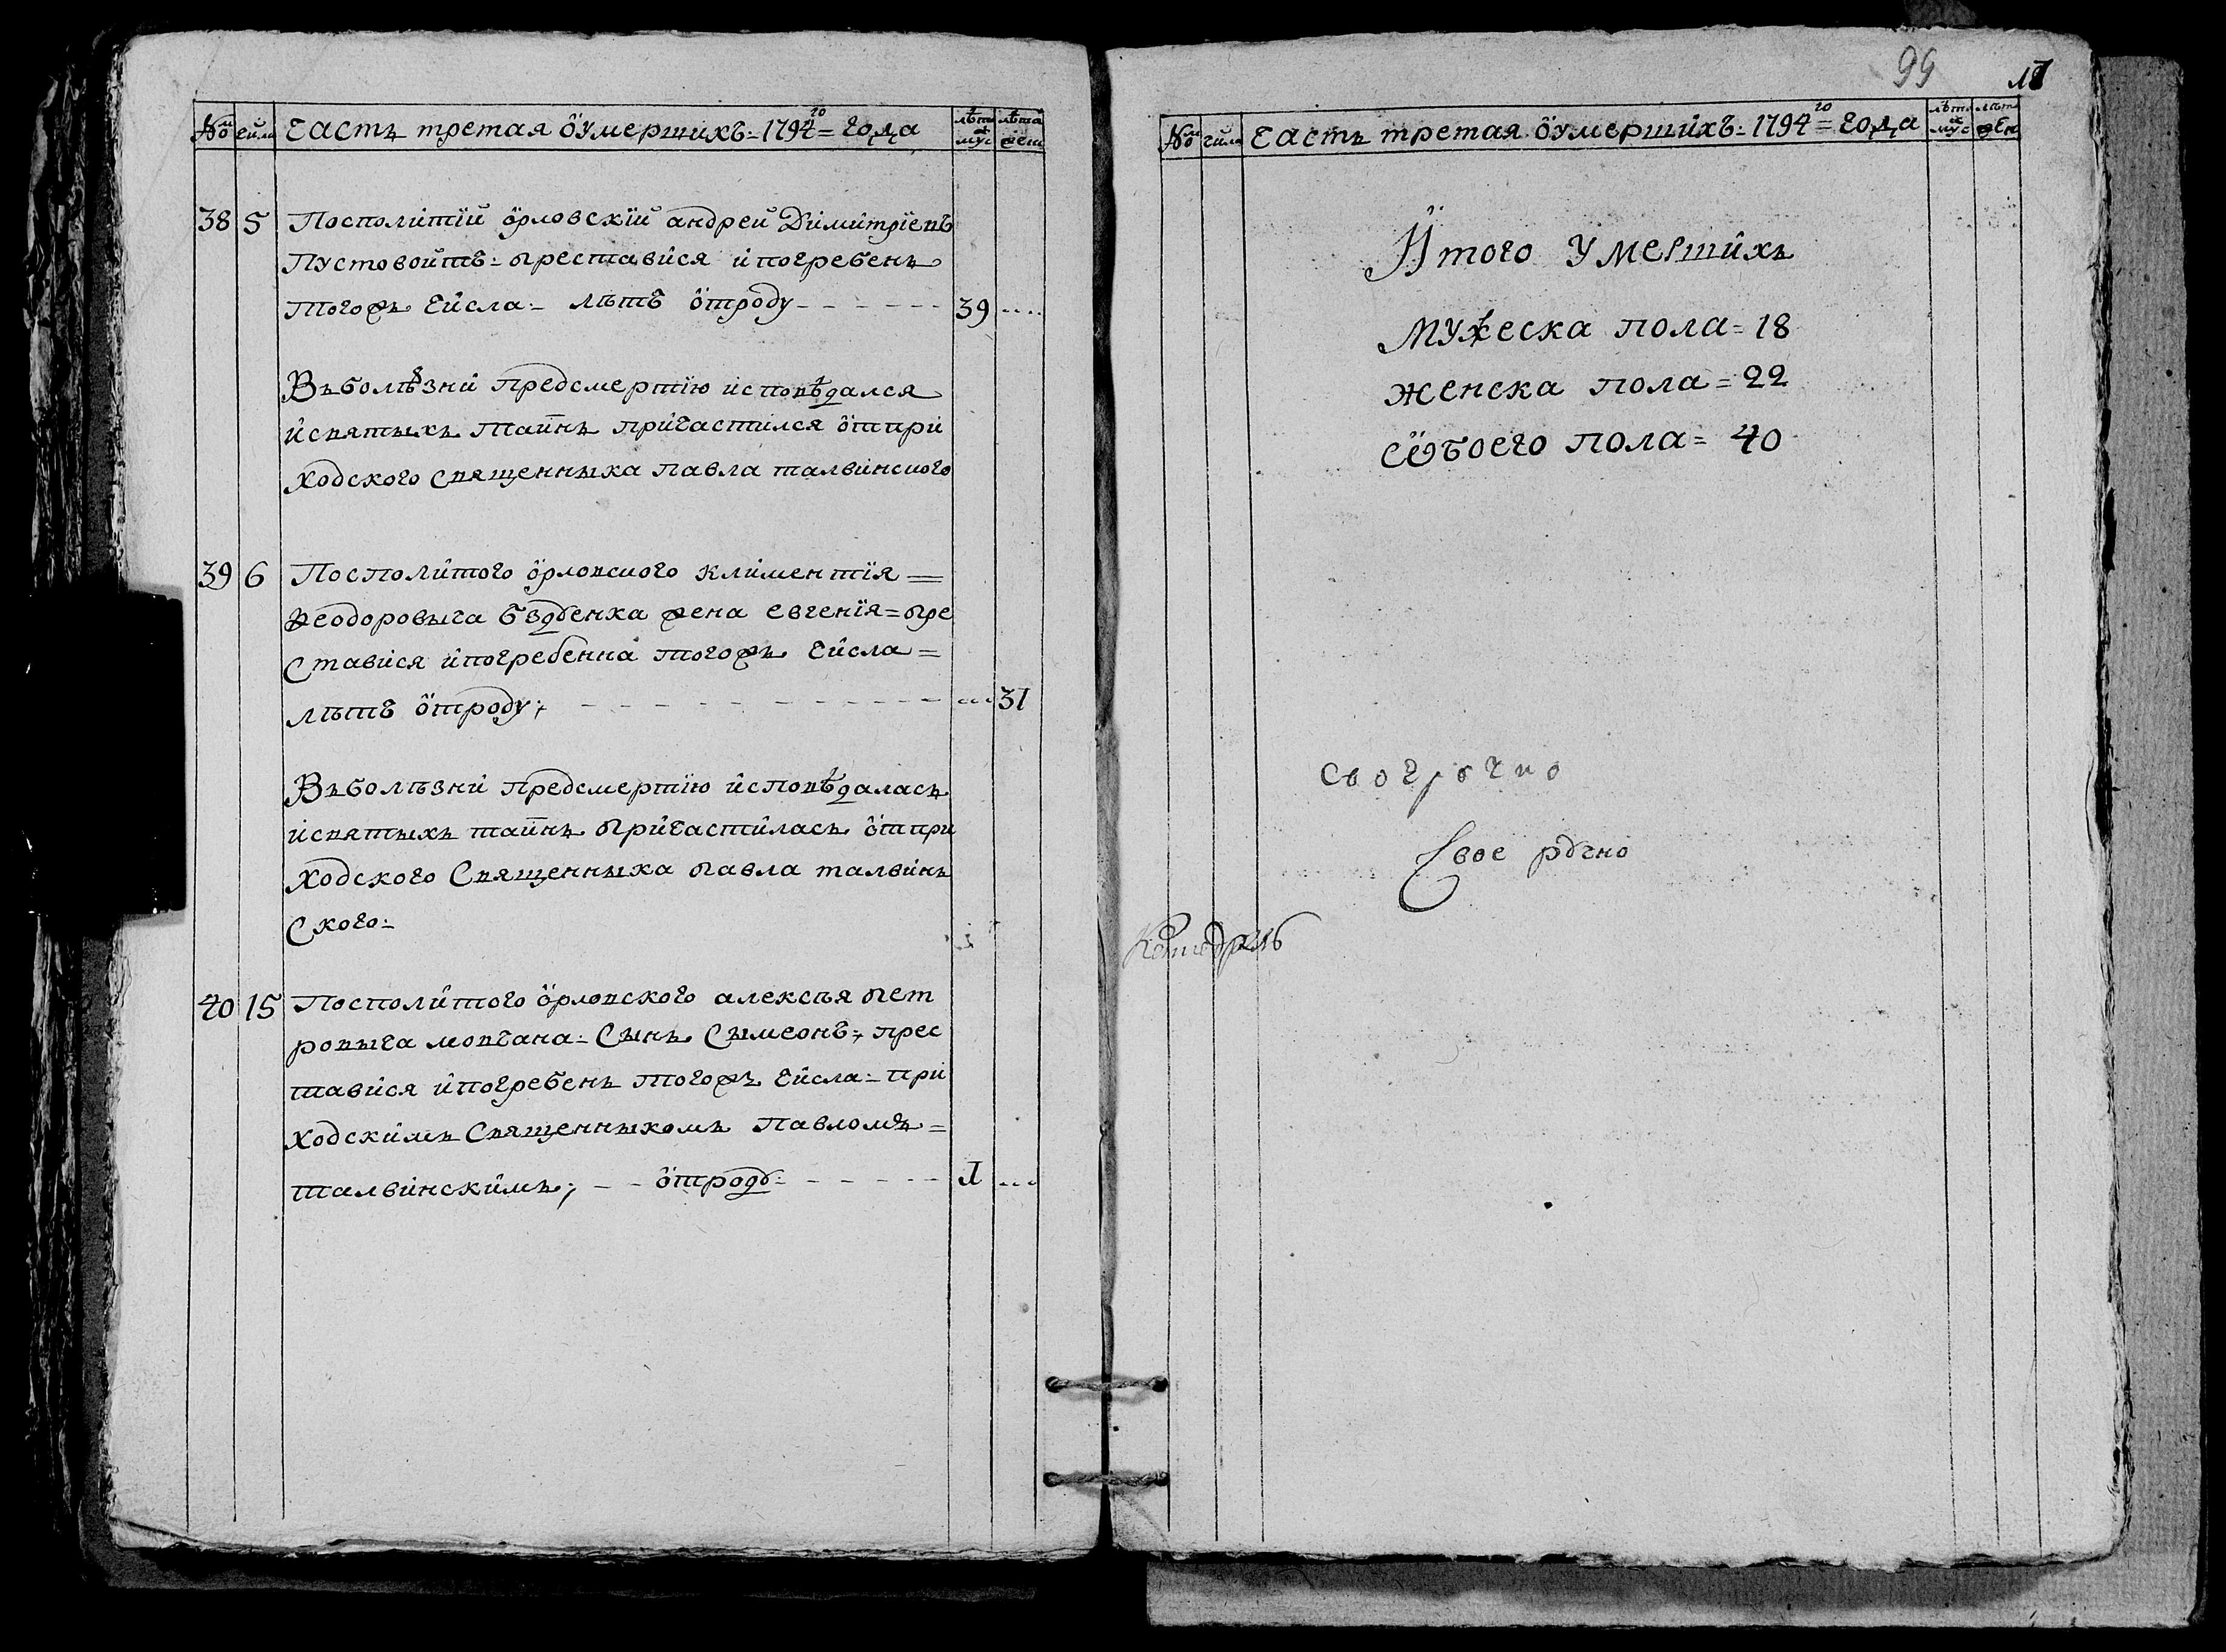 № числ Часть третая о умершихъ = 1794го = года лѣта муж лѣта жен
38 5 Посполитїй орловскїй андрей Димитрїевъ
Пустовойтъ = преставися и погребенъ
тогожъ числа = лѣтъ отроду 39
Въ болѣзни предсмертїю исповѣдался
и святыхъ таинъ причастился от при
ходского священныка павла талвинского
39 6 Посполитого орловского климентїя =
Ѳеодоровыча бѣдбенка жена евгенїя = пре
ставися и погребенна тогожъ числа =
лѣтъ отроду; 31
Въ болѣзни предсмертїю исповѣдалась
и святыхъ таинъ причастилась от при
ходского Священныка павла талвинъ
Ского =
40 15 Посполитого орловского алексѣя пет
ровыча мовчана = Сынъ Сымеонъ; прес
тавися и погребенъ тогожъ числа = при
ходскимъ Священныкомъ Павломъ =
талвинскимъ; отроду 1
99 17
№ числ Часть третая о умершихъ = 1794го = года лѣта муж лѣта жен
Итого умершихъ
Мужеска пола = 18
женска пола = 22
Обоего пола = 40
Свое рѹчно